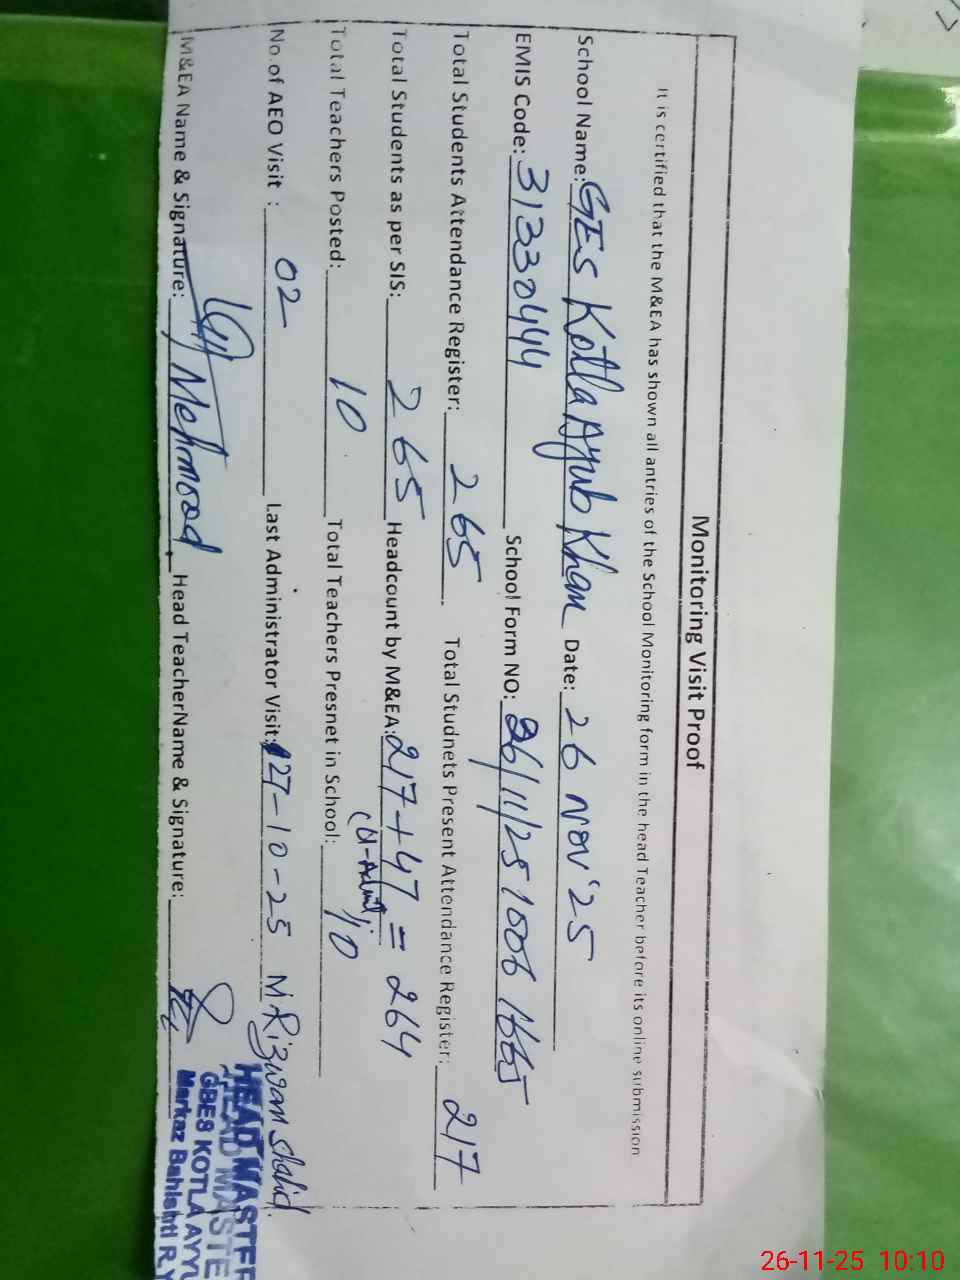 Monitoring Visit Proof
It is certified that the M&EA has shown all antries of the School Monitoring form in the head Teacher before its online submission
School Name: GEs Kotla Ayub Khan Date: 26 Nov '25
EMIS Code: 31330444 School Form NO: 26/11/25 1006 1665
Total Students Attendance Register: 265. Total Studnets Present Attendance Register: 217
Total Students as per SIS: 265 Headcount by M&EA: 217+47 = 264
Total Teachers Posted: 10 Total Teachers Presnet in School: 10
No.of AEO Visit : 02 Last Administrator Visit: 27-10-25 M Rizwan Shahid.
M&EA Name & Signature: Mehmood Head TeacherName & Signature:
HEAD MASTER
HEAD MASTE
GBES KOTLA AYYU
Markaz Bahishti R.Y
26-11-25 10:10